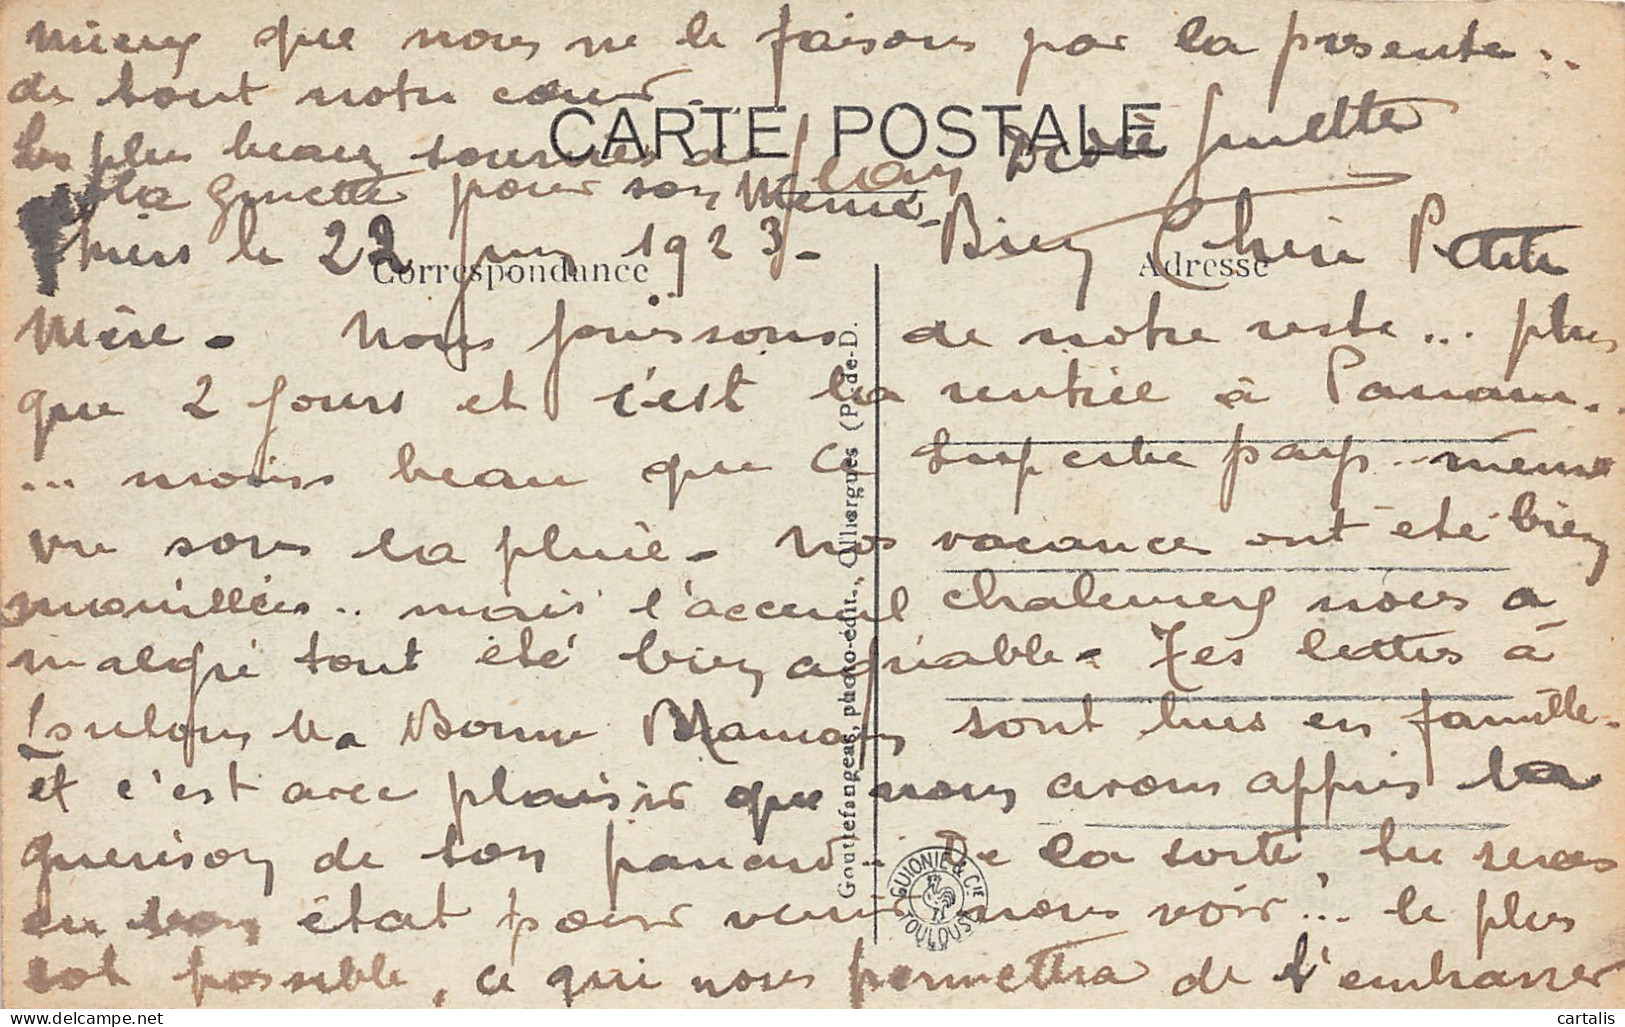 mieux que nous ne le faisons par la présente..
de tout notre cœur.
CARTE POSTALE
Les plus beaux sourires de
Ginette
la Ginette pour son Mémé.
Thiers le 22 Juin 1923. Bien Chère Petite
Correspondance
Adresse
Mère. Nous jouissons de notre reste... plus
que 2 jours et c'est la rentrée à Panam..
... moins beau que ce superbe pays.. même
vu sous la pluie. Nos vacances ont été bien
mouillées.. mais l'accueil chaleureux nous a
malgré tout été bien agréable. Tes lettres à
la Bonne Maman sont lues en famille.
et c'est avec plaisir que nous avons appris la
guérison de ton panard. De la sorte, tu seras
en bon état pour venir nous voir... le plus
tot possible, ce qui nous permettra de t'embrasser
Gouttefangeas, photo-édit., Olliergues (P.-de-D.
GUIONIE & Cie
TOULOUSE
cartalis